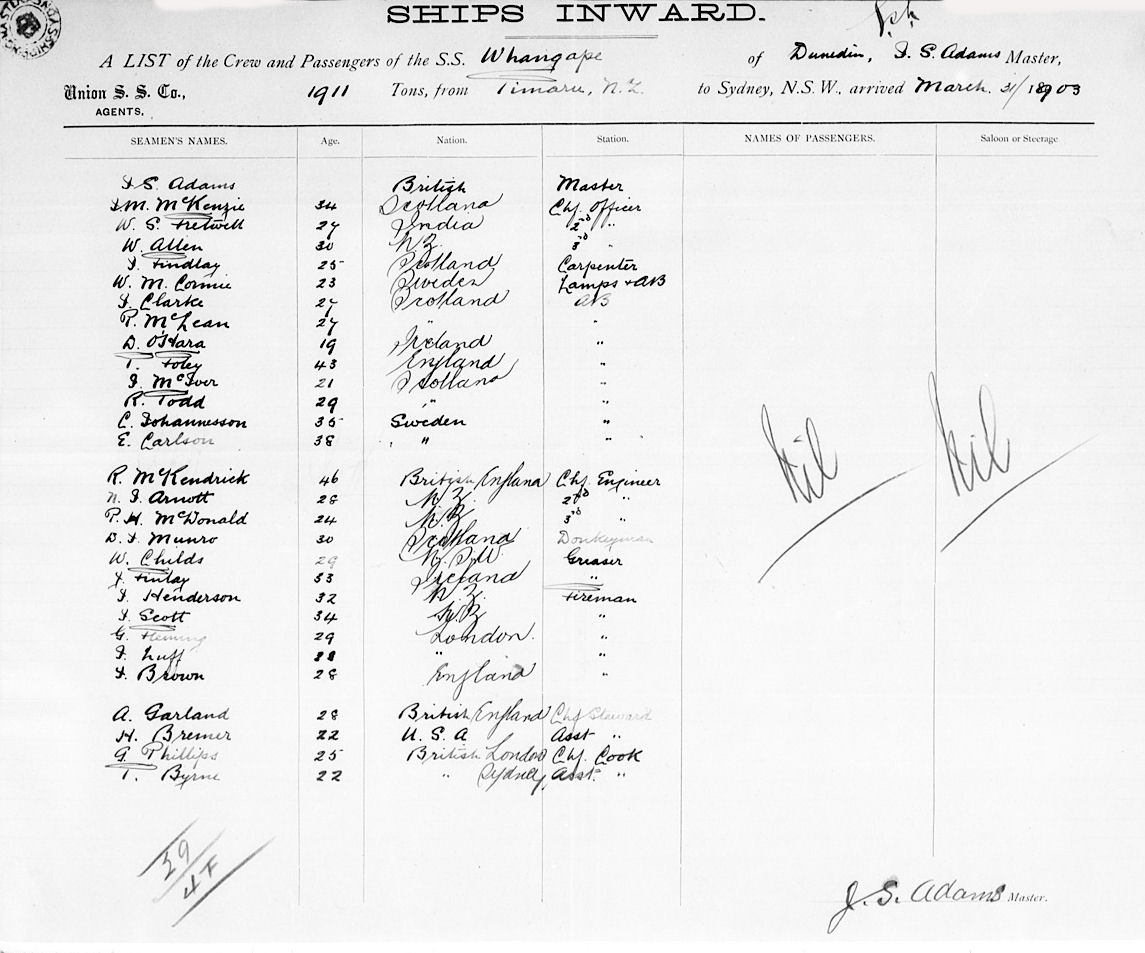 SHIPS INWARD.
A LIST of the Crew and Passengers of the S.S. Whangape of Dunedin, J. S. Adams Master,
Union S. S. Co., 1911 Tons, from Timaru, N.Z. to Sydney, N.S.W., arrived March. 31/1903
AGENTS.
SEAMEN'S NAMES. Age. Nation. Station. NAMES OF PASSENGERS. Saloon or Steerage.
J S. Adams British Master
J M. McKenzie 34 Scotland Chf. Officer
W. S. Fretwell 27 India 2nd "
W. Allen 30 N.Z. 3rd "
J. Findlay 25 Scotland Carpenter
W. M. Comie 23 Sweden Lamps + AB
J. Clarke 27 Scotland AB
P. McLean 27 " "
D. O'Hara 19 Ireland "
T. Foley 43 England "
J. McIver 21 Scotland "
R. Todd 29 " "
C. Johannesson 35 Sweden "
E. Carlson 38 " "
R. McKendrick 46 British England Chf. Engineer
N. J. Arnott 28 N.Z. 2nd "
P. H. McDonald 24 N.Z. 3rd "
D. J. Munro 30 Scotland Donkeyman
W. Childs 29 N.S.W. Greaser
J. Finlay 33 Ireland "
J. Henderson 32 N.Z. Fireman
J. Scott 34 N.Z. "
G. Fleming 29 London. "
J. Luff "
J. Brown 28 England "
A. Garland 28 British England Chf Steward
H. Bremer 22 U. S. A Asst "
G. Phillips 25 British London Chf. Cook
T. Byrne 22 " Sydney, Asst. "
Nil Nil
J. S. Adams Master.